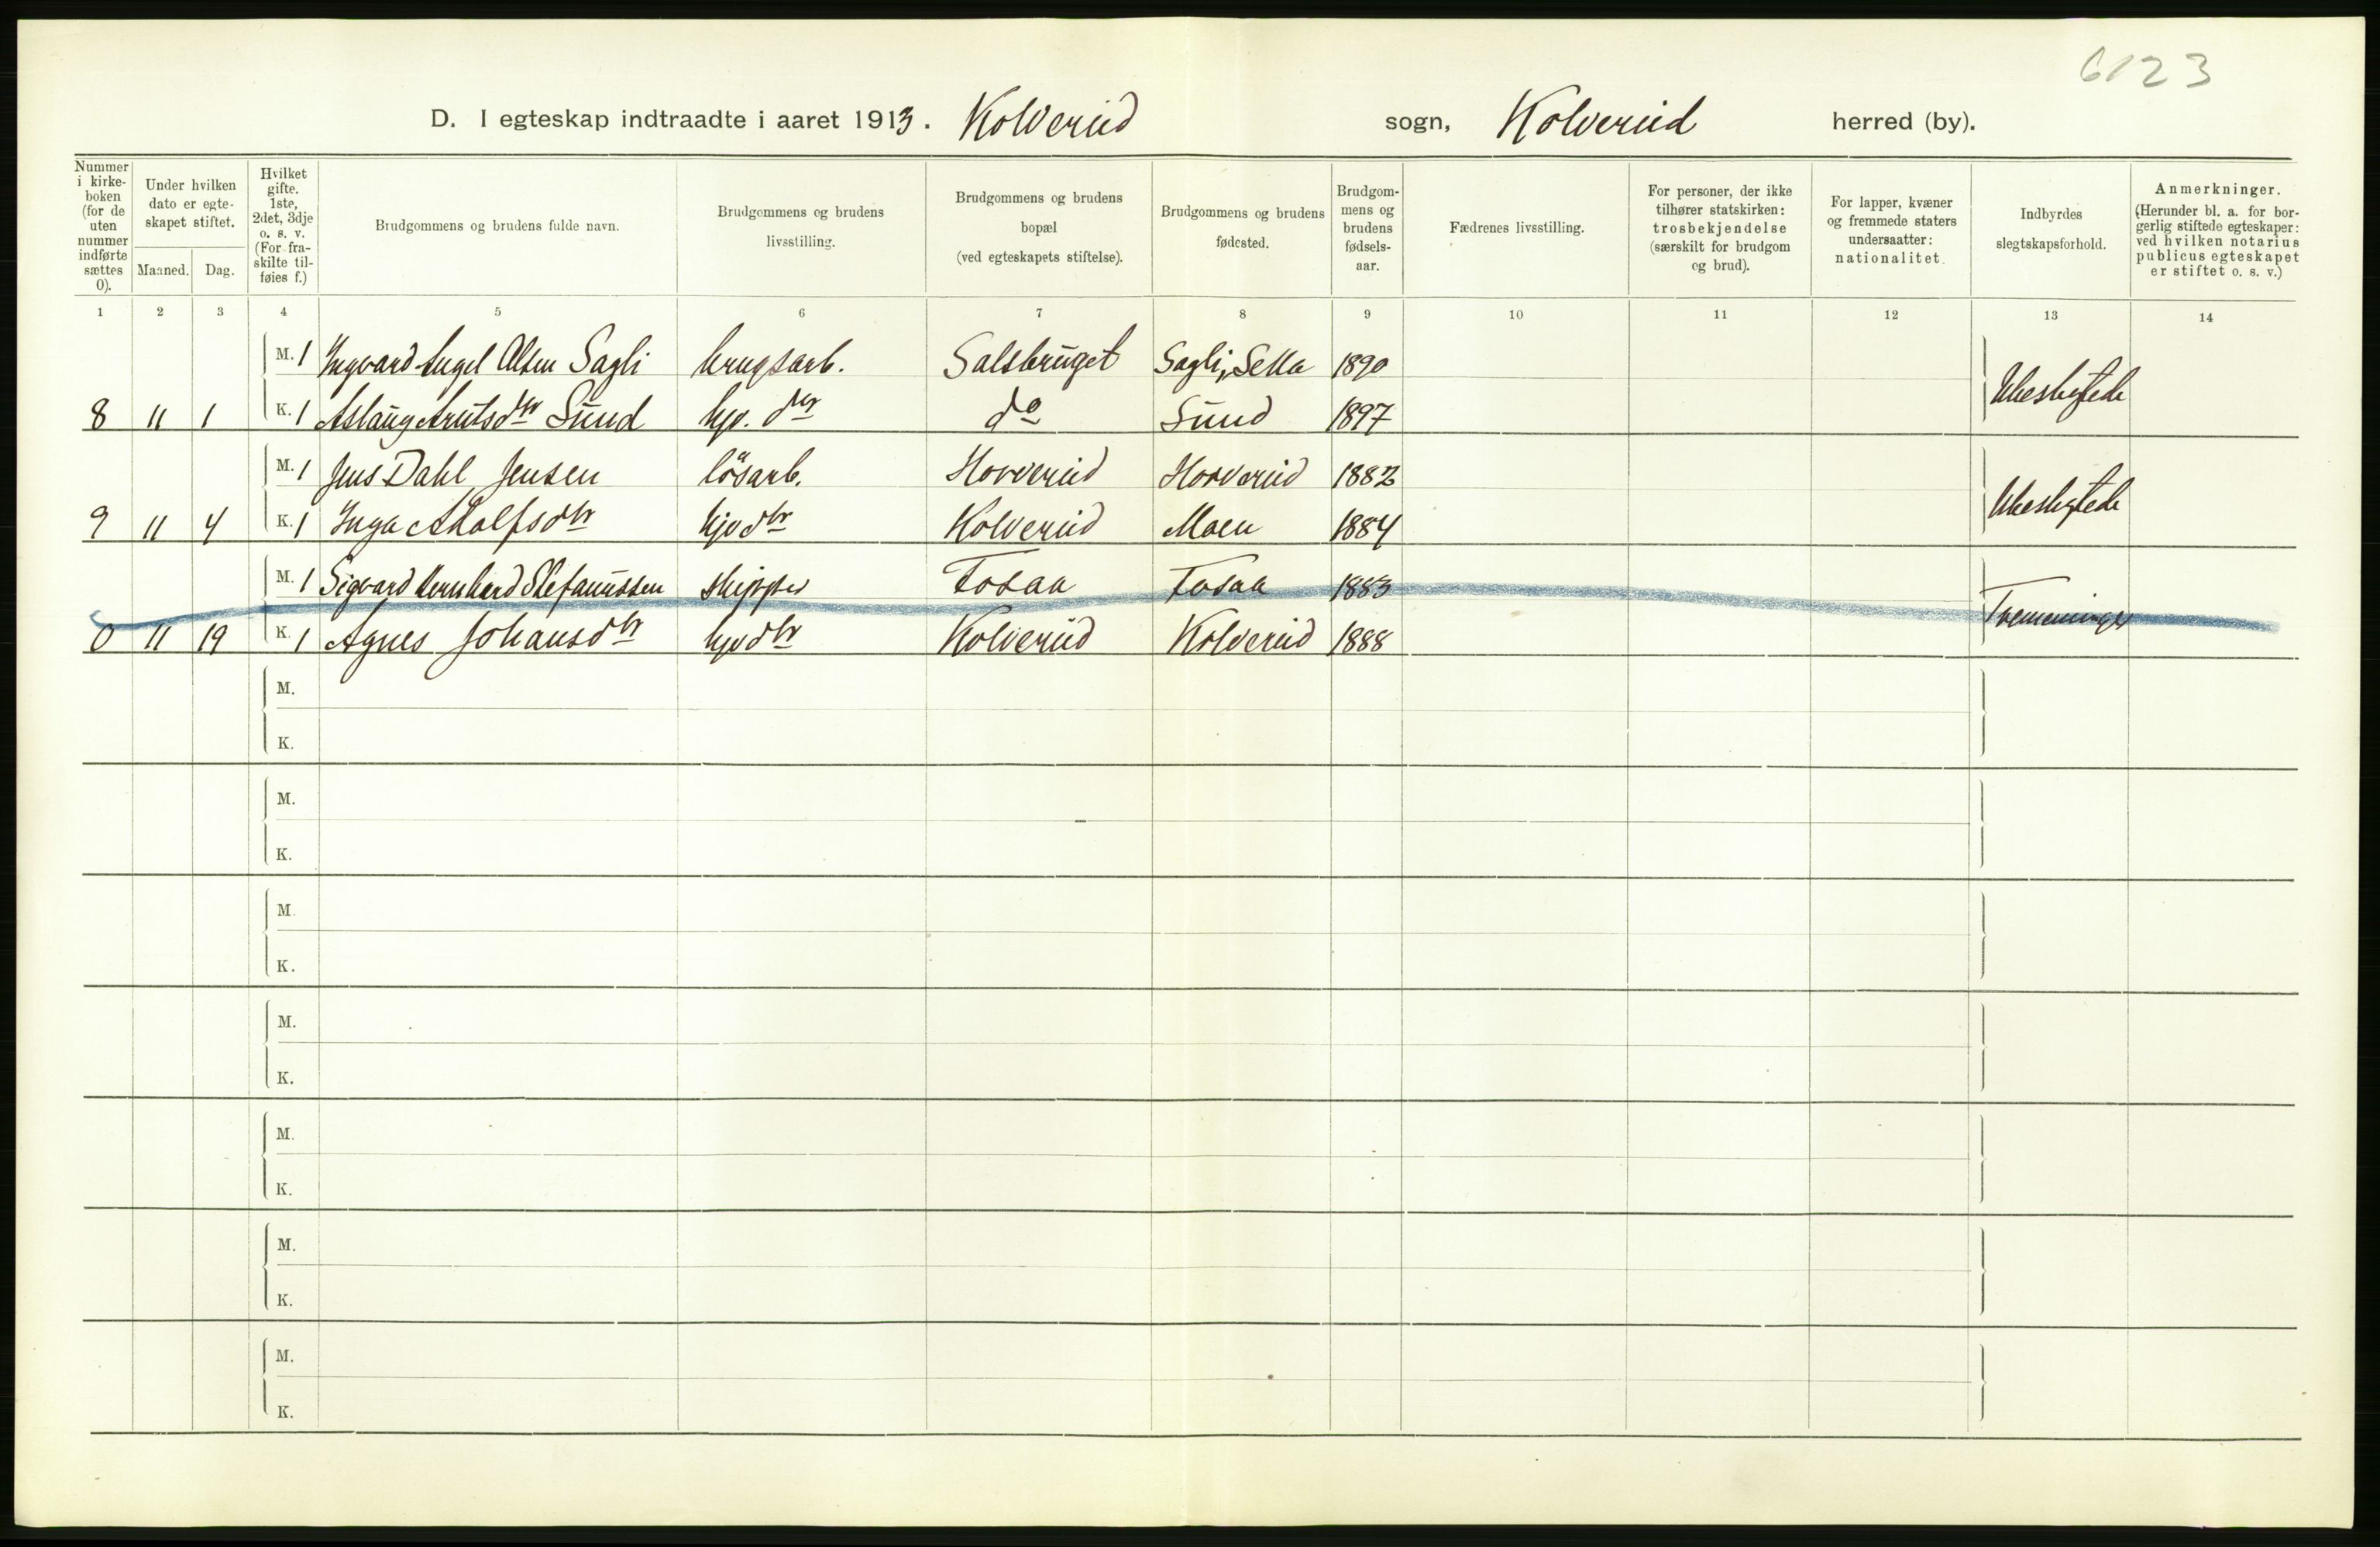 6123
D. I egteskap indtraadte i aaret 1913. Kolvereid sogn, Kolvereid herred (by).
Nummer i kirke-boken (for de uten nummer indførte sættes 0).
Under hvilken dato er egte-skapet stiftet.
Maaned. Dag.
Hvilket gifte. 1ste, 2det, 3dje o. s. v. (For fra-skilte til-føies f.)
Brudgommens og brudens fulde navn.
Brudgommens og brudens livsstilling.
Brudgommens og brudens bopæl (ved egteskapets stiftelse).
Brudgommens og brudens fødested.
Brudgom-mens og brudens fødsels-aar.
Fædrenes livsstilling.
For personer, der ikke tilhører statskirken: trosbekjendelse (særskilt for brudgom og brud).
For lapper, kvæner og fremmede staters undersaatter: nationalitet.
Indbyrdes slegtskapsforhold.
Anmerkninger. (Herunder bl. a. for bor-gerlig stiftede egteskaper: ved hvilken notarius publicus egteskapet er stiftet o. s. v.)
1 2 3 4 5 6 7 8 9 10 11 12 13 14
M. 1 Ingvard Angel Olsen Sagli brugsarb. Salsbruget Sagli, Sella 1890
Ubeslegtede
8 11 1 K. 1 Aslaug Arntsdtr Sund hjv. dtr do Sund 1897
M. 1 Jens Dahl Jensen løsarb. Horvereid Horvereid 1882
Ubeslegtede
9 11 4 K. 1 Inga Adolfsdtr hjvdtr Kolvereid Moen 1884
M. 1 Sigvard Bernhard Stefanussen skipper Fosaa Fosaa 1883
Tremeninger
0 11 19 K. 1 Agnes Johansdtr hjvdtr Kolvereid Kolvereid 1888
M.
K.
M.
K.
M.
K.
M.
K.
M.
K.
M.
K.
M.
K.